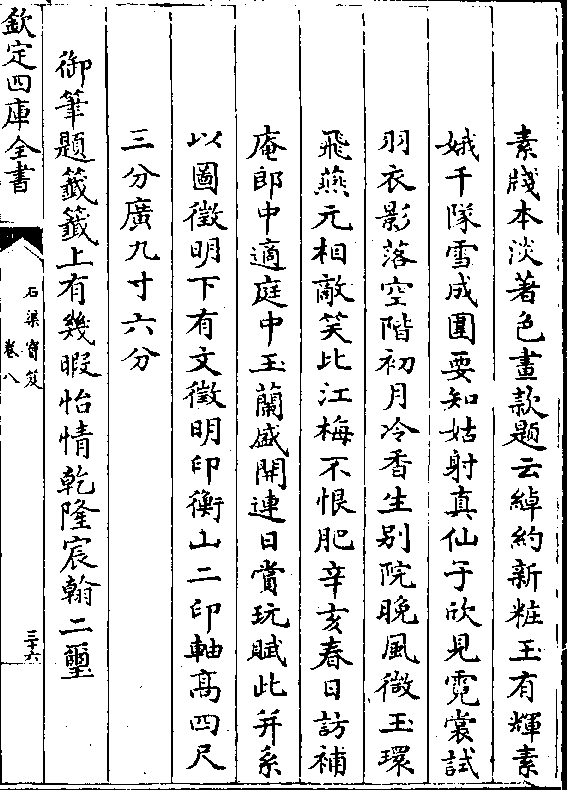 素牋本淡著色畫款題云綽約新粧玉有輝素
娥千隊雪成圍要知姑射真仙子欣見霓裳試
羽衣影落空階初月冷香生別院晚風微玉環
飛燕元相敵笑比江梅不恨肥辛亥春日訪補
庵郎中適庭中玉蘭盛開連日賞玩賦此并系
以圖徵明下有文徵明印衡山二印軸髙四尺
三分廣九寸六分
御筆題籤籤上有幾暇怡情乾隆宸翰二璽
欽定四庫全書
石渠寶笈
卷八
三十六